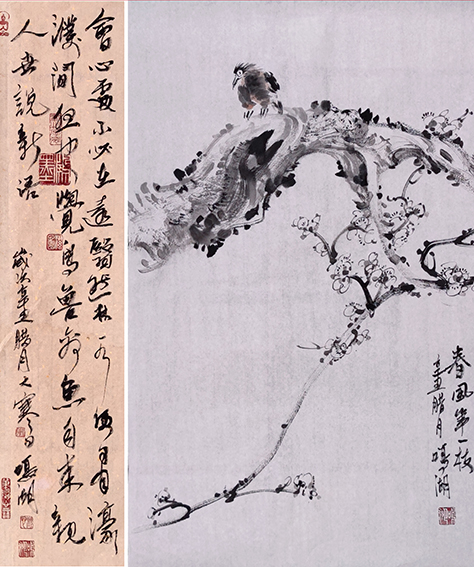 會心處不必在遠翳然林水便自有濠
濮間想也覺鳥獸禽魚自來親
人世說新語
歲次辛丑臘月之寒日鳴湖
春風第一枝
辛丑臘月鳴湖